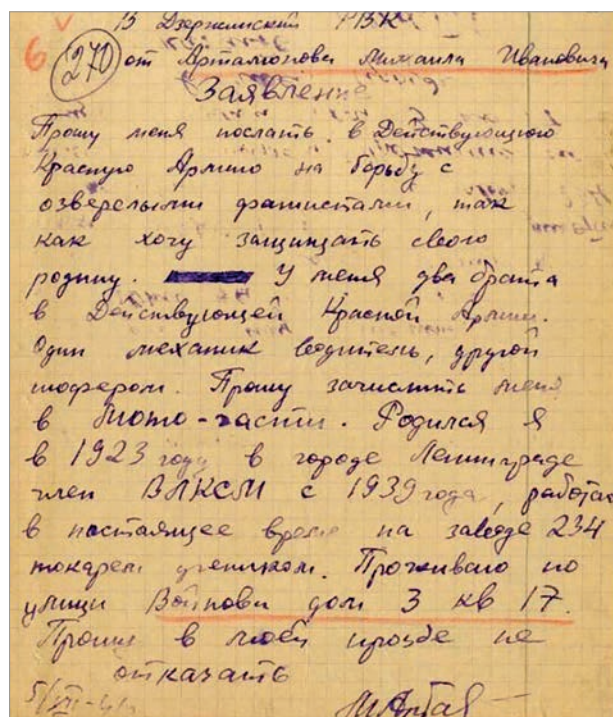 В Дзержинский РВК
6 270 от Артамонова Михаила Ивановича
Заявление
Прошу меня послать в Действующую
Красную Армию на борьбу с
озверелыми фашистами, так
как хочу защищать свою
родину. У меня два брата
в Действующей Красной Армии.
Один механик водитель, другой
шофером. Прошу зачислить меня
в мото-части. Родился я
в 1923 году в городе Ленинграде
член ВЛКСМ с 1939 года, работаю
в настоящее время на заводе 234
токарем учеником. Проживаю по
улици Войнова дом 3 кв 17.
Прошу в моей прозбе не
отказать